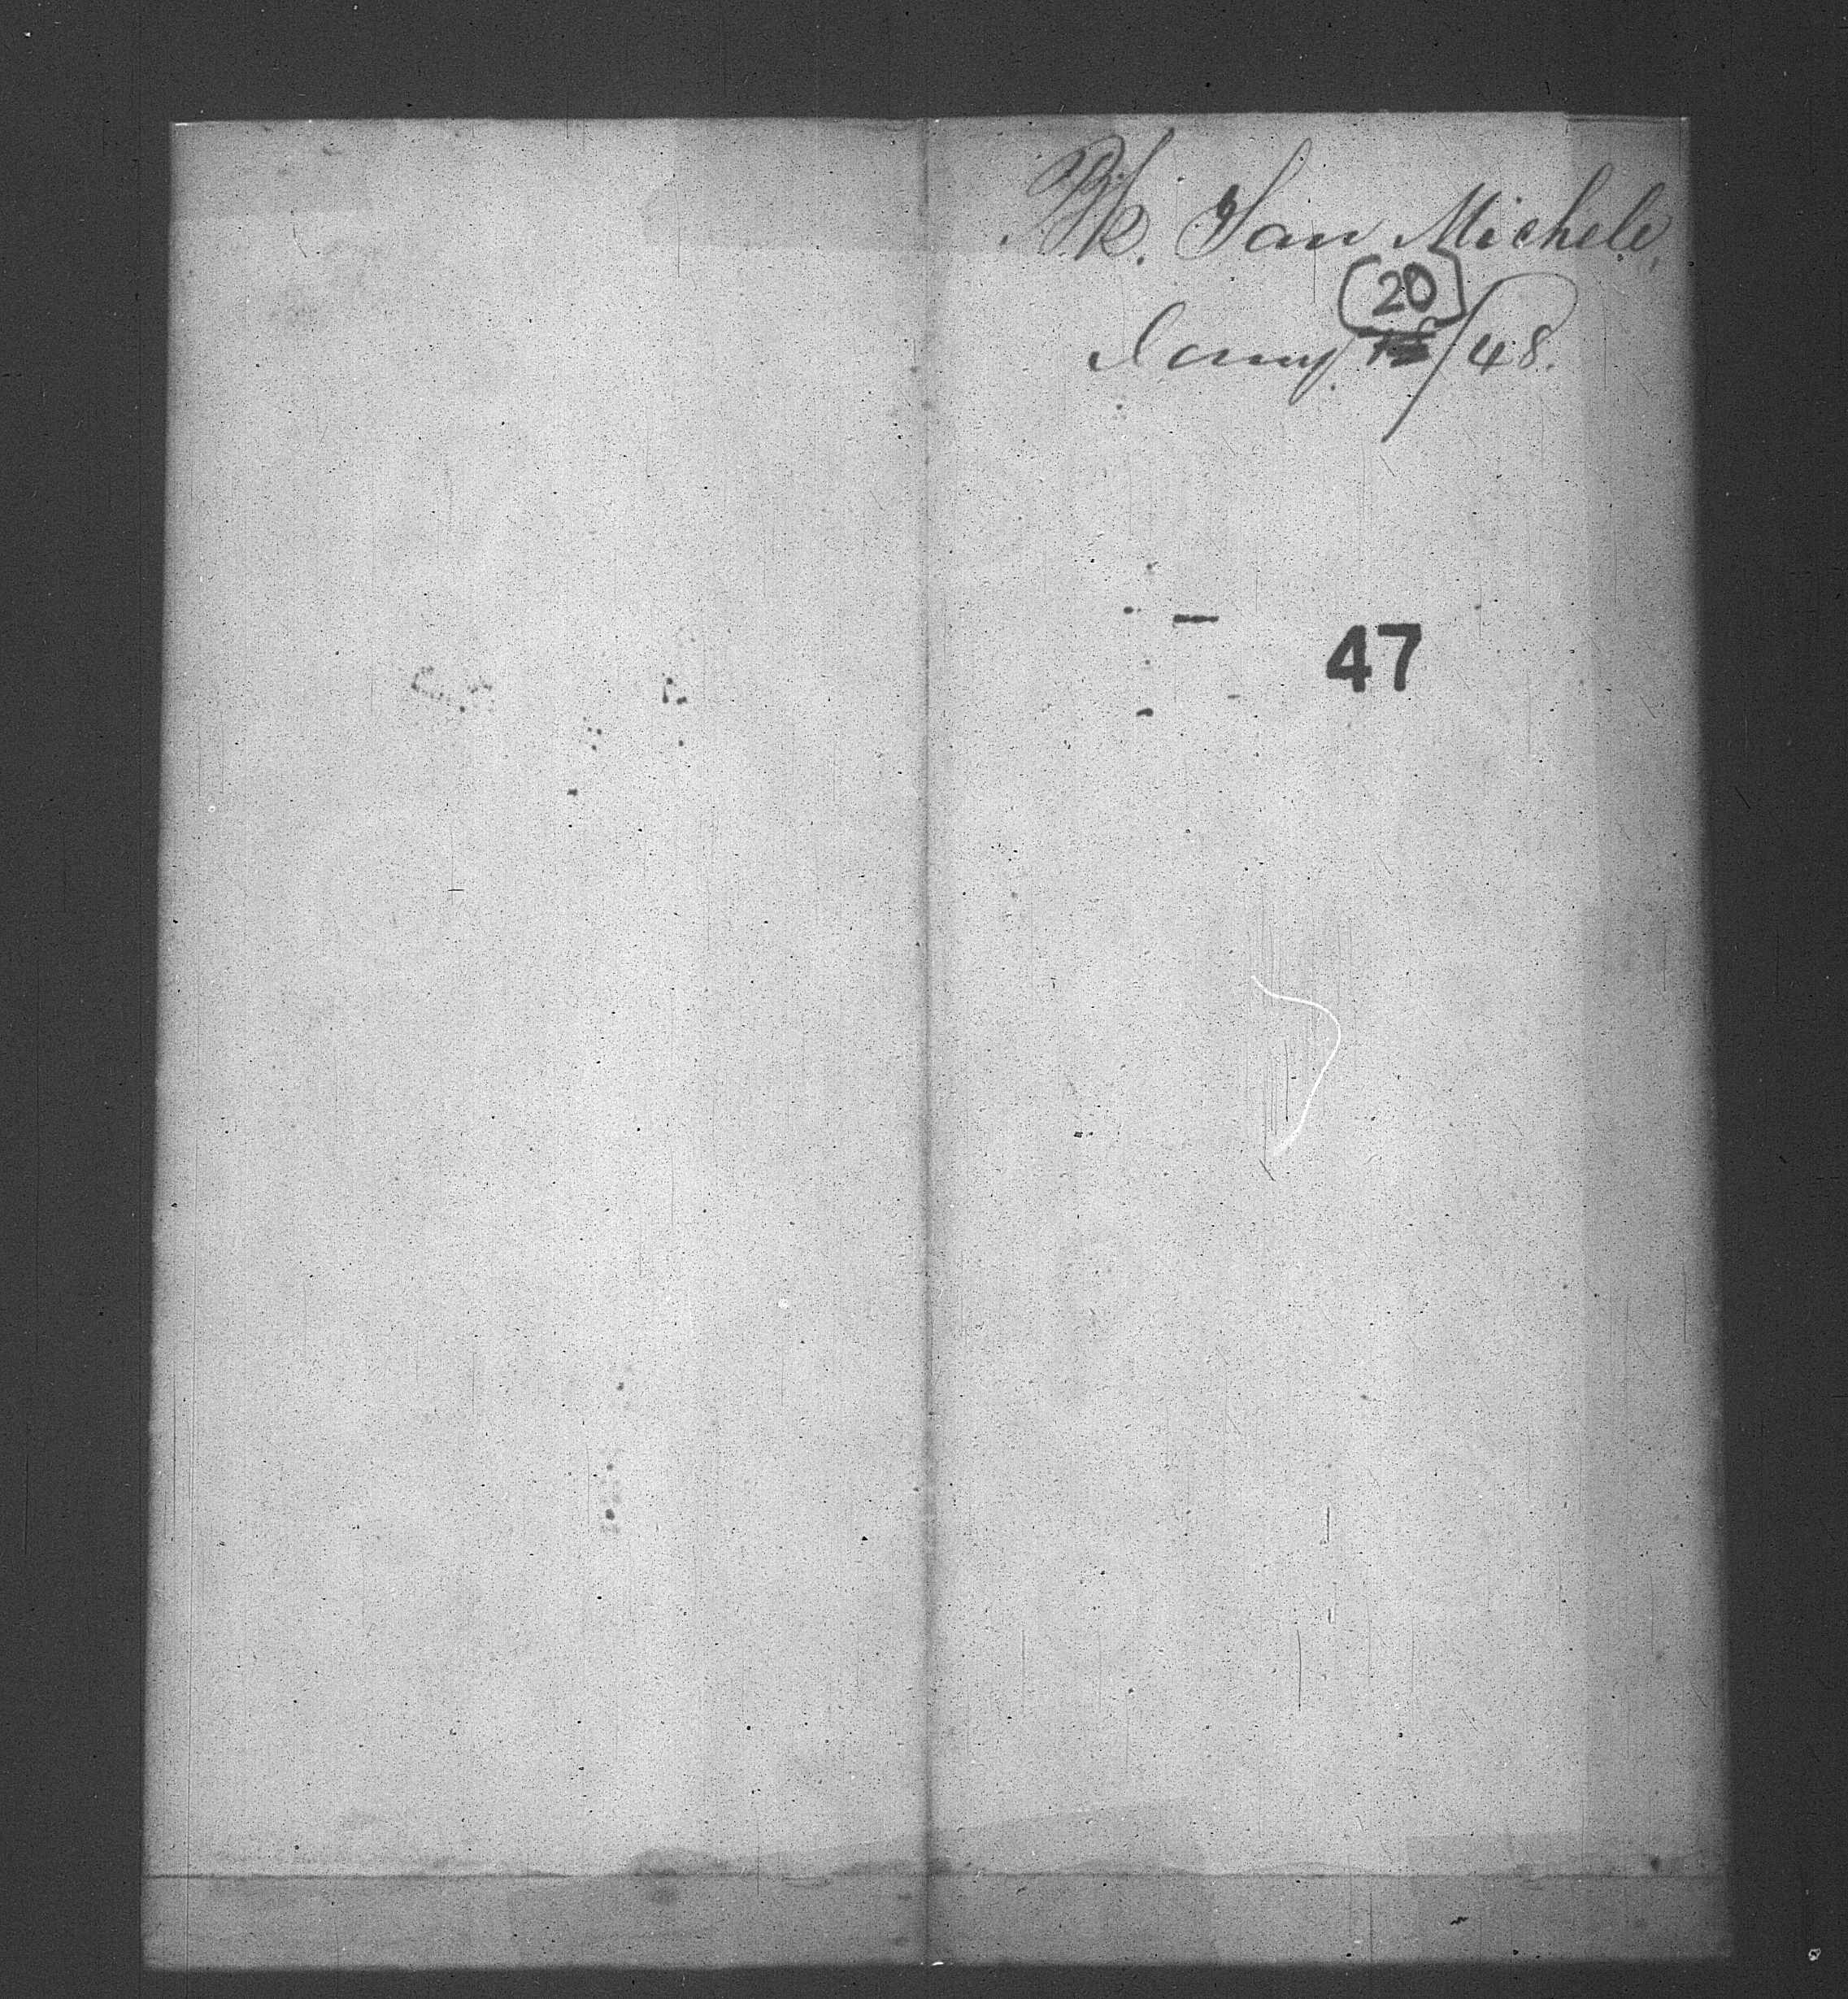 Bk. San Michele,
(20)
Jany. /48.
47